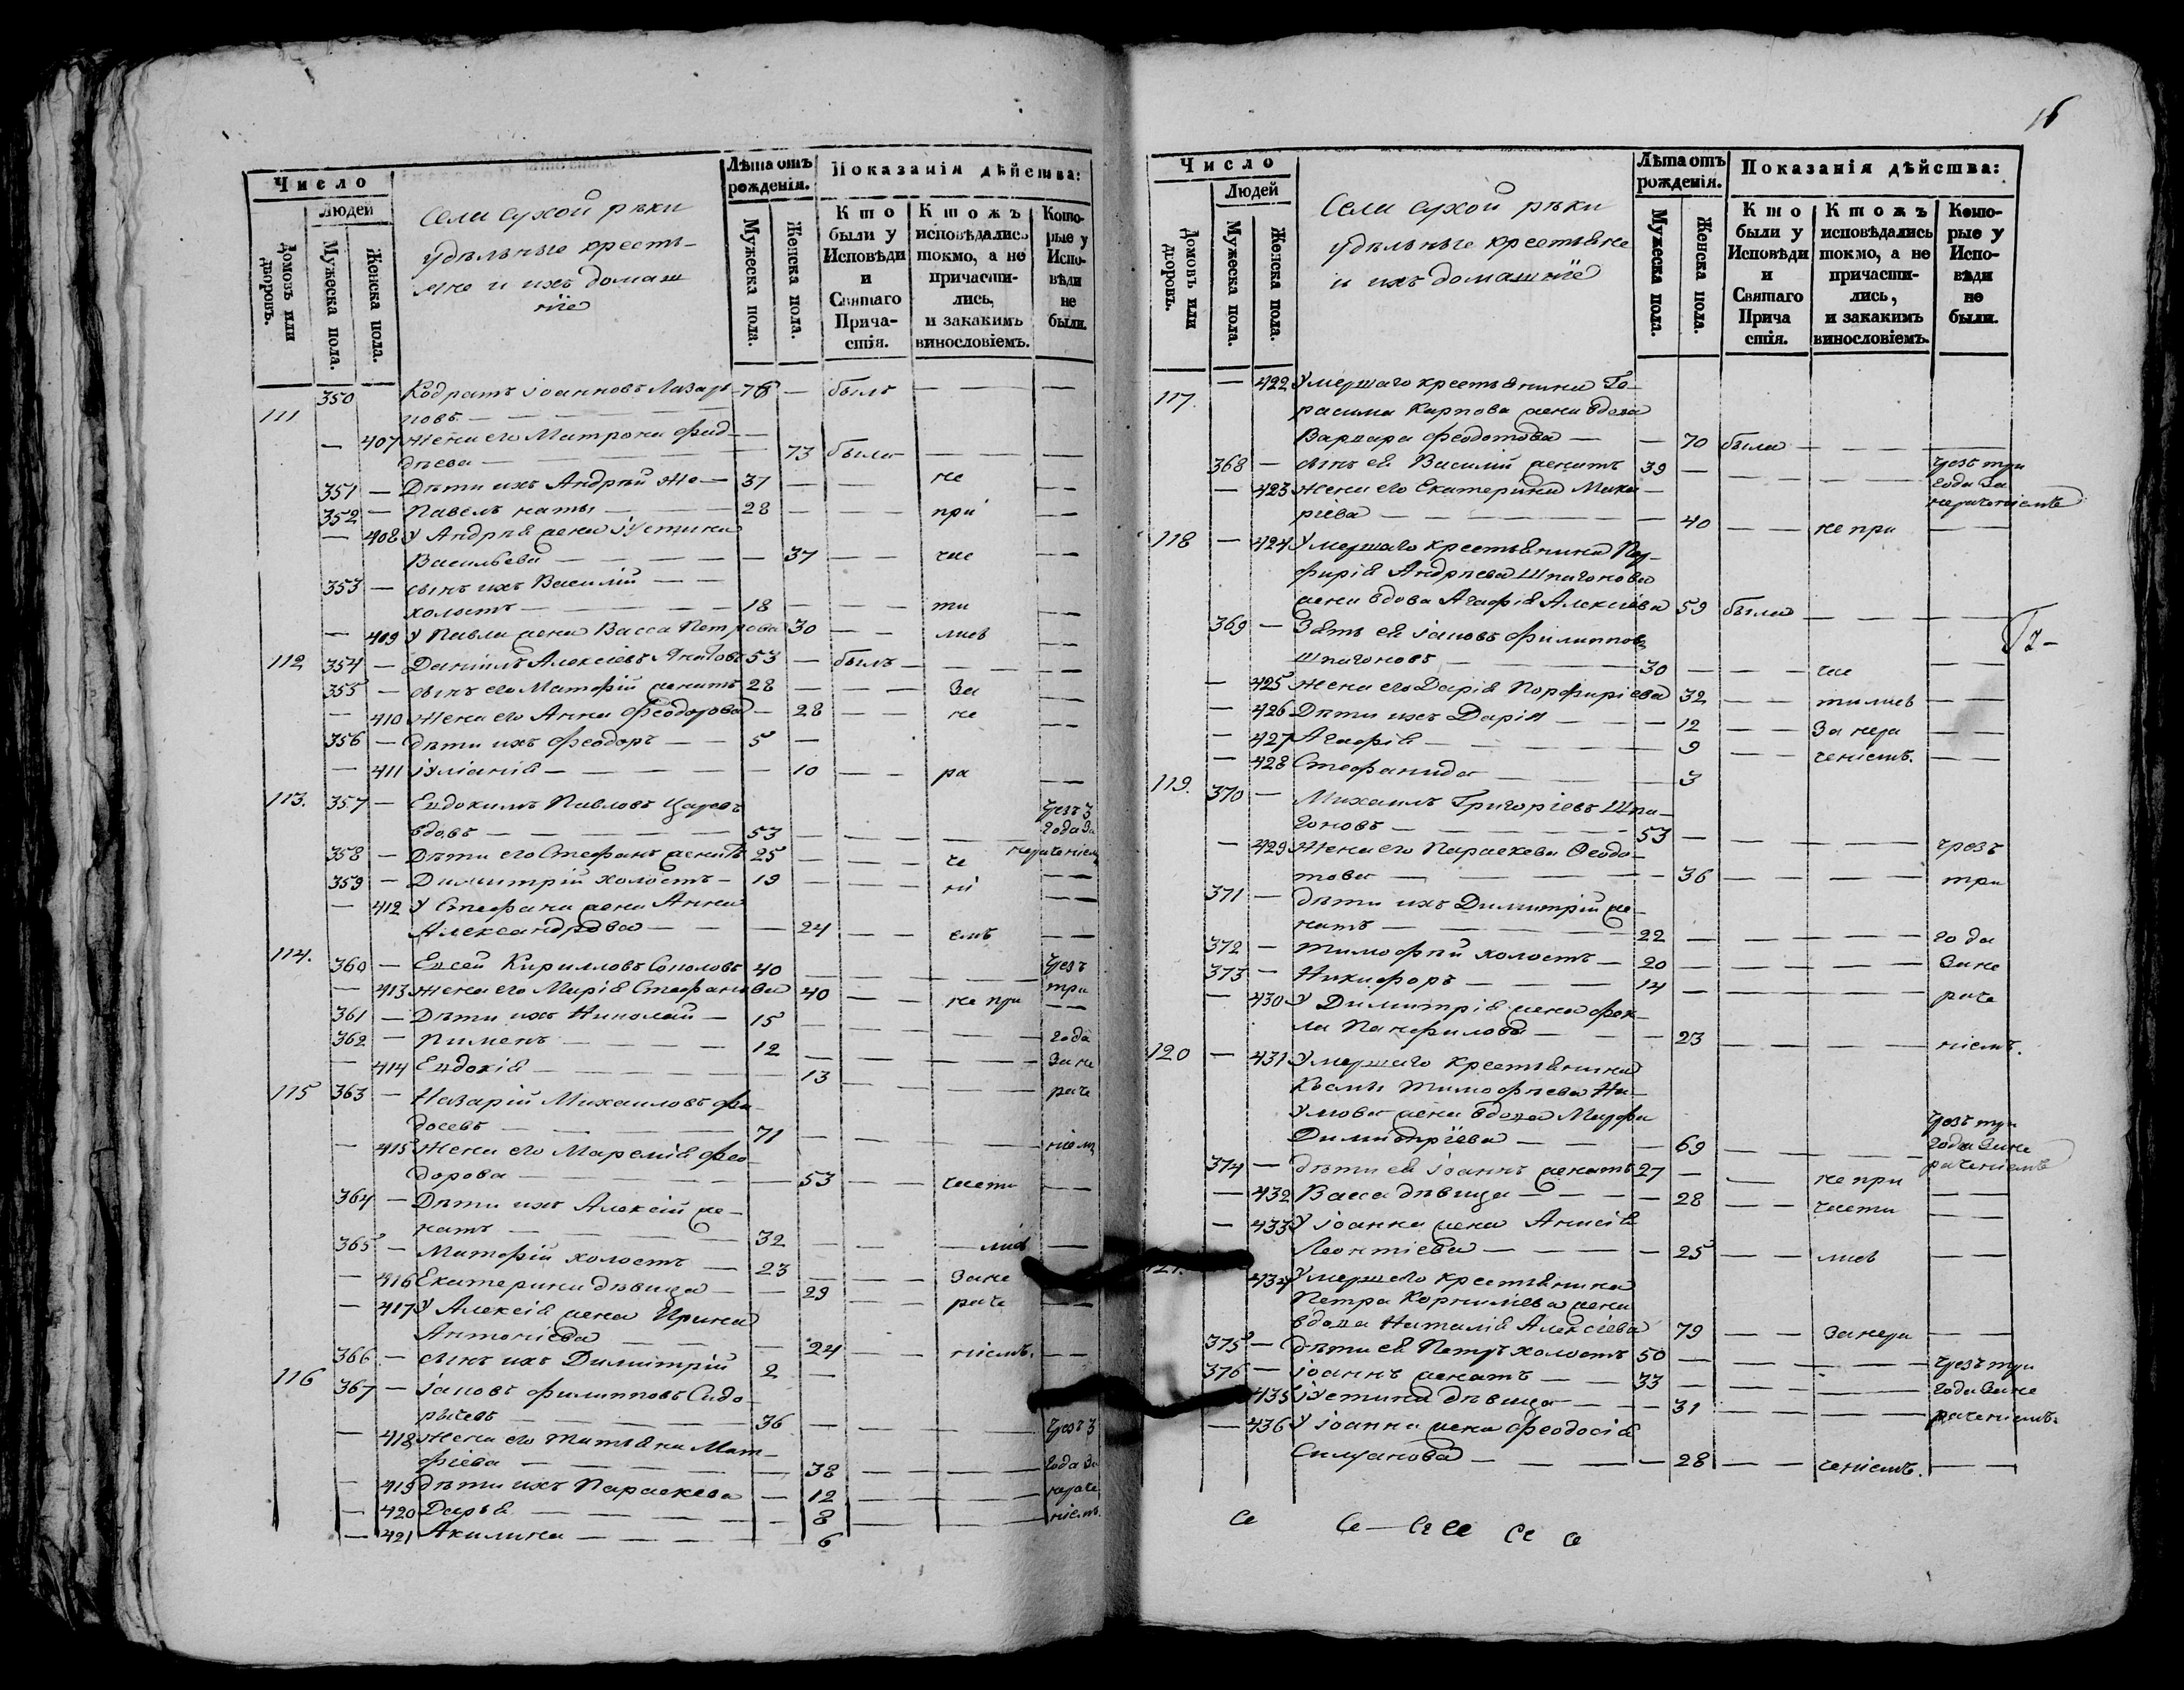 Число
Людей
Домовъ или дворовъ.
Мужеска пола.
Женска пола.
Села сухой рѣки
удѣльные кресть-
яне и ихъ домаш
ніе
Лѣта отъ рожденія.
Мужеска пола.
Женска пола.
Показанія дѣйства:
Кто были у Исповѣди и Святаго Прича- стія.
Ктожъ исповѣдались токмо, а не причасти- лись, и закакимъ винословіемъ.
Кото- рые у Испо- вѣди не были.
111 350 Кодратъ Іоанновъ Лазар- 76 — былъ — — —
новъ — — —
— 407 жена его Матрона Фад-
дѣева — — 73 была — — —
351 — Дѣти ихъ Андрей же- 37 — — не — —
352 — Павелъ наты — 28 — — при — —
— 408 У Андрея жена Іустина
Васильева — — 37 — — час — —
353 — сынъ ихъ Василій — —
холостъ — 18 — — ти — —
— 409 У Павла жена Васса Петрова 30 — — лись — —
112 354 — Даніилъ Алексіевъ 53 — былъ — — —
355 — сынъ его Матфій женатъ 28 — — за — —
— 410 жена его Анна Феодорова — 28 — — не — —
356 — дѣти ихъ Феодоръ — — 5 —
— 411 Іуліанія — — 10 — — ра — —
113. 357 — Евдокимъ Павловъ Царевъ чрезъ 3
вдовъ — 53 — — — года за
358 — Дѣти его Стефанъ женатъ 25 — — че нераченіемъ
359 — Димитрій холостъ — 19 — — ні — —
— 412 У Стефана жена Анна
Александрова — — 24 — — емъ — —
114. 360 — Евсей Кирилловъ Соколовъ 40 — — — чрезъ
— 413 жена его Марія Стефанова 40 — — не при три
361 — Дѣти ихъ Николай — 15 — — —
362 — Пименъ — 12 — — — года
— 414 Евдокія — — 13 — — — за не
115 363 — Назарій Михаиловъ Фа- раче
досевъ — 71 — — —
— 415 жена его Маремія Фео- ніемъ
дорова — — 53 — — части — —
364 — Дѣти ихъ Алексій же-
натъ — 32 — — лись —
365 — Матфій холостъ — 23 — —
— 416 Екатерина дѣвица — — 29 — — за не
— 417 У Алексія жена Ирина раче — —
Антоніева — — 24 — — ніемъ. — —
366 — сынъ ихъ Димитрій 2 —
116 367 — Іаковъ Филипповъ Сидо-
рычевъ — 36 — — — чрезъ 3
— 418 жена его Татьяна Мат-
фіева — — 38 — — — года за
— 419 дѣти ихъ Параскева — 12 — — — нераче
— 420 Дарья — — 8 — — — ніемъ.
— 421 Акилина — — 6
16
Число
Людей
Домовъ или дворовъ.
Мужеска пола.
Женска пола.
Села сухой рѣки
удѣльные крестьяне
и ихъ домашніе
Лѣта отъ рожденія.
Мужеска пола.
Женска пола.
Показанія дѣйства:
Кто были у Исповѣди и Святаго Прича стія.
Ктожъ исповѣдались токмо, а не причасти- лись, и закакимъ винословіемъ.
Кото- рые у Испо- вѣди не были.
117. — 422 Умершаго крестьянина Ге-
расима Карпова жена вдова
Варвара Феодотова — — 70 была — — —
368 — сынъ ея Василій женатъ 39 — — — чрезъ три года за нераченіемъ
— 423 жена его Екатерина Мака-
ріева — — 40 — — не при — —
118 — 424 Умершаго крестьянина Пор-
фирія Андреева Шпагонова
жена вдова Агафія Алексіева 59 была — — —
369 — Зять ея Іаковъ Филипповъ
Шпагоновъ — 30 — — час — —
— 425 жена его Дарія Порфиріева 32 — — тились — —
— 426 Дѣти ихъ Дарія — — 12 — — за нера — —
— 427 Агафія — — 9 — — ченіемъ. — —
— 428 Стефанида — 3
119. 370 — Михаилъ Григоріевъ Шпа-
гоновъ — 53 — — — чрезъ
— 429 жена его Параскева Феодо-
това — — 36 — — — три
371 — дѣти ихъ Димитрій же-
натъ — 22 — — — года
372 — Тимофѣй холостъ — 20 — — — за не
373 — Никифоръ — 14 — — — раче
— 430 У Димитрія жена Фек-
ла Панфилова — — 23 — — — ніемъ.
120 — 431 Умершаго крестьянина
Тимофѣева На-
умова жена вдова Марфа чрезъ три
Димитріева — — 69 — — — года за не
374 — дѣти ея Іоаннъ женатъ 27 — — не при раченіемъ
— 432 Васса дѣвица — — 28 — — части — —
— 433 У Іоанна жена Анисія
Леонтіева — — 25 — — лись — —
121. — 434 Умершаго крестьянина
Петра Корнилева жена
вдова Наталія Алексіева 79 — — за нера — —
375 — дѣти ея Петръ холостъ 50 — — — чрезъ три
376 — Іоаннъ женатъ — 33 — — — года за не
— 435 Іустина дѣвица — — 31 — — — раченіемъ.
— 436 У Іоанна жена Феодосія
Силуанова — — 28 — — ченіемъ. — —